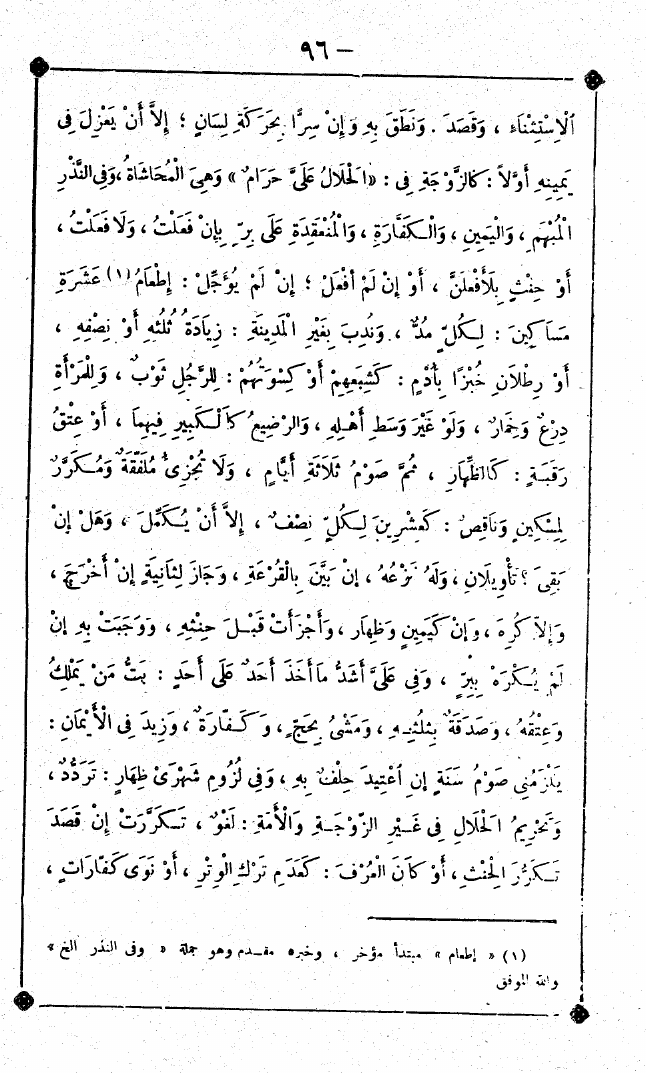 — ٩٦
الْاِسْتِثْنَاءِ ، وَقَصَدَ . وَنَطَقَ بِهِ وَإِنْ سِرًّا بِحَرَكَةِ لِسَانٍ ؛ إِلاَّ أَنْ يَعْزِلَ فِى
يَمِينِهِ أَوَّلاً : كَالزَّوْجَةِ فِى : «الْحَلَالُ عَلَىَّ حَرَامٌ» وَهِىَ الْمُحَاشَاةُ ، وَفِى النَّذْرِ
الْمُبْهَمِ ، وَالْيَمِينِ ، وَالْكَفَّارَةِ ، وَالْمُنْعَقِدَةِ عَلَى بِرٍّ بِإِنْ فَعَلْتُ ، وَلَا فَعَلْتُ ،
أَوْ حِنْثٍ بِلَأَفْعَلَنَّ ، أَوْ إِنْ لَمْ أَفْعَلْ ؛ إِنْ لَمْ يُؤَجِّلْ : إِطْعَامُ (١) عَشَرَةِ
مَسَاكِينَ : لِكُلٍّ مُدٌّ ، وَنُدِبَ بِغَيْرِ الْمَدِينَةِ : زِيَادَةُ ثُلُثِهِ أَوْ نِصْفِهِ ،
أَوْ رِطْلاَنِ خُبْزًا بِأُدْمٍ : كَشِبَعِهِمْ أَوْ كِسْوَتُهُمْ : لِلرَّجُلِ ثَوْبٌ ، وَلِلْمَرْأَةِ
دِرْعٌ وَخِمَارٌ ، وَلَوْ غَيْرَ وَسَطِ أَهْلِهِ ، وَالرَّضِيعُ كَالْكَبِيرِ فِيهِمَا ، أَوْ عِتْقُ
رَقَبَةٍ : كَالظِّهَارِ ، ثُمَّ صَوْمُ ثَلَاثَةِ أَيَّامٍ ، وَلَا تُجْزِئُ مُلَفَّقَةٌ وَمُكَرَّرٌ
لِمِسْكِينٍ وَنَاقِصٌ : كَعِشْرِينَ لِكُلٍّ نِصْفٌ ، إِلاَّ أَنْ يُكَمِّلَ ، وَهَلْ إِنْ
بَقِىَ ؟ تَأْوِيلَانِ ، وَلَهُ نَزْعُهُ ، إِنْ بَيَّنَ بِالْقُرْعَةِ ، وَجَازَ لِثَانِيَةٍ إِنْ أَخْرَجَ ،
وَإِلاَّ كُرِهَ ، وَإِنْ كَيَمِينٍ وَظِهَارٍ ، وَأَجْزَأَتْ قَبْلَ حِنْثِهِ ، وَوَجَبَتْ بِهِ إِنْ
لَمْ يُكْرَهْ بِبِرٍّ ، وَفِى عَلَىَّ أَشَدُّ مَا أَخَذَ أَحَدٌ عَلَى أَحَدٍ : بَتُّ مَنْ يَمْلِكُ
وَعِتْقُهُ ، وَصَدَقَةٌ بِثُلُثِهِ ، وَمَشْىٌ بِحَجٍّ ، وَكَفَّارَةٌ ، وَزِيدَ فِى الْأَيْمَانِ :
يَلْزَمُنِى صَوْمُ سَنَةٍ إِنِ اعْتِيدَ حَلِفٌ بِهِ ، وَفِى لُزُومِ شَهْرَىْ ظِهَارٍ : تَرَدُّدٌ ،
وَتَحْرِيمُ الْحَلَالِ فِى غَيْرِ الزَّوْجَةِ وَالْأَمَةِ : لَغْوٌ ، تَكَرَّرَتْ إِنْ قَصَدَ
تَكَرُّرَ الْحِنْثِ ، أَوْ كَانَ الْعُرْفَ : كَعَدَمِ تَرْكِ الْوِتْرِ ، أَوْ نَوَى كَفَّارَاتٍ ،
(١) « إطعام » مبتدأ مؤخر ، وخبره مقدم وهو جملة « وفى النذر الخ »
والله الموفق